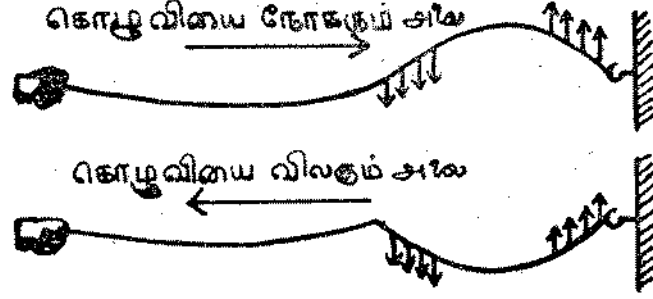 கொழுவியை நோக்கும் அலை
கொழுவியை விலகும் அலை